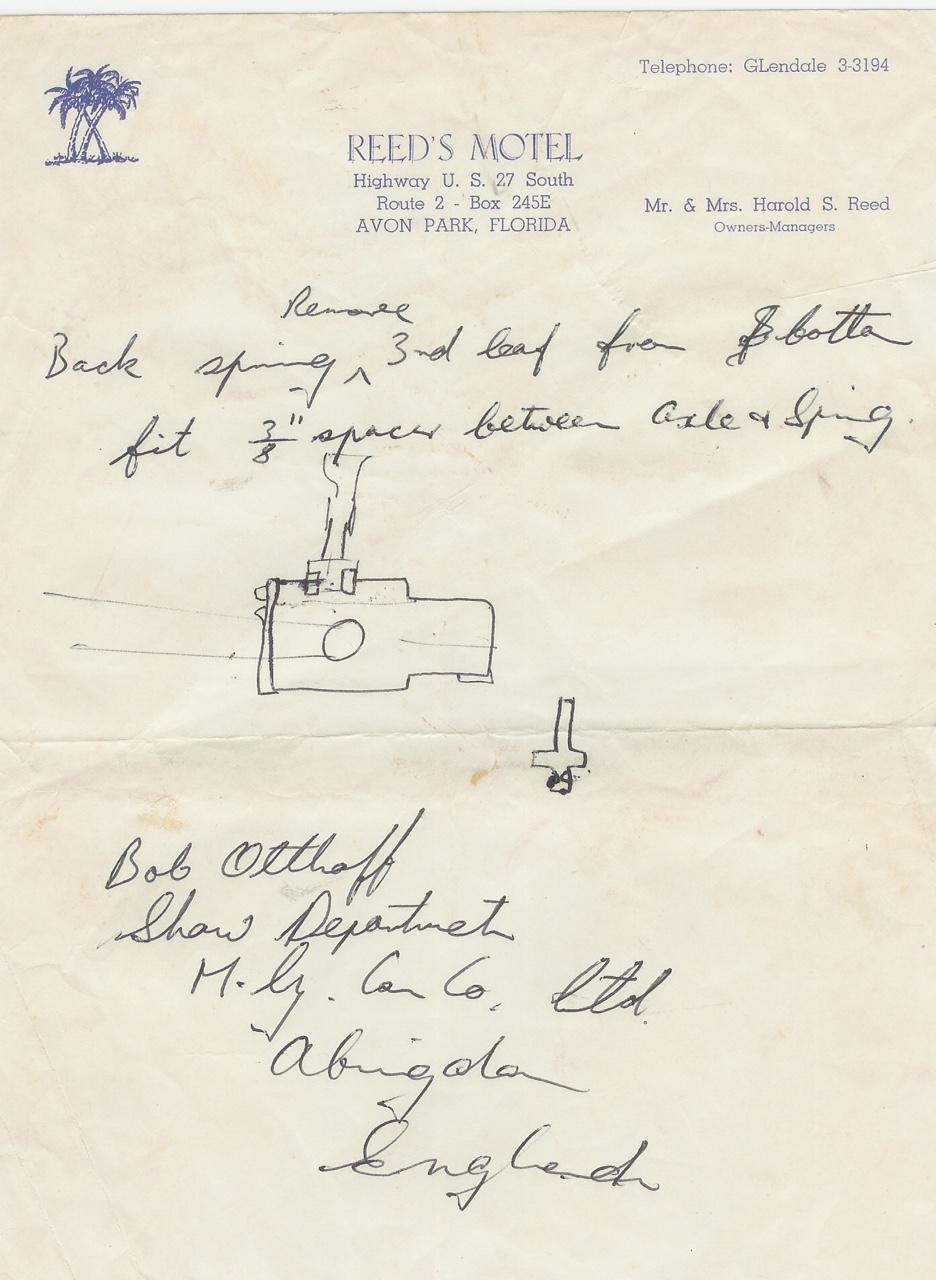 Telephone: GLendale 3-3194
REED'S MOTEL
Highway U. S. 27 South
Route 2 - Box 245E
AVON PARK, FLORIDA
Mr. & Mrs. Harold S. Reed
Owners-Managers
Remove
Back spring ^ 3rd leaf from bottom
fit 3/8" spacer between axle & Spring.
Bob Olthoff
Show Department
M.G. Car Co. Ltd.
Abingdon
England